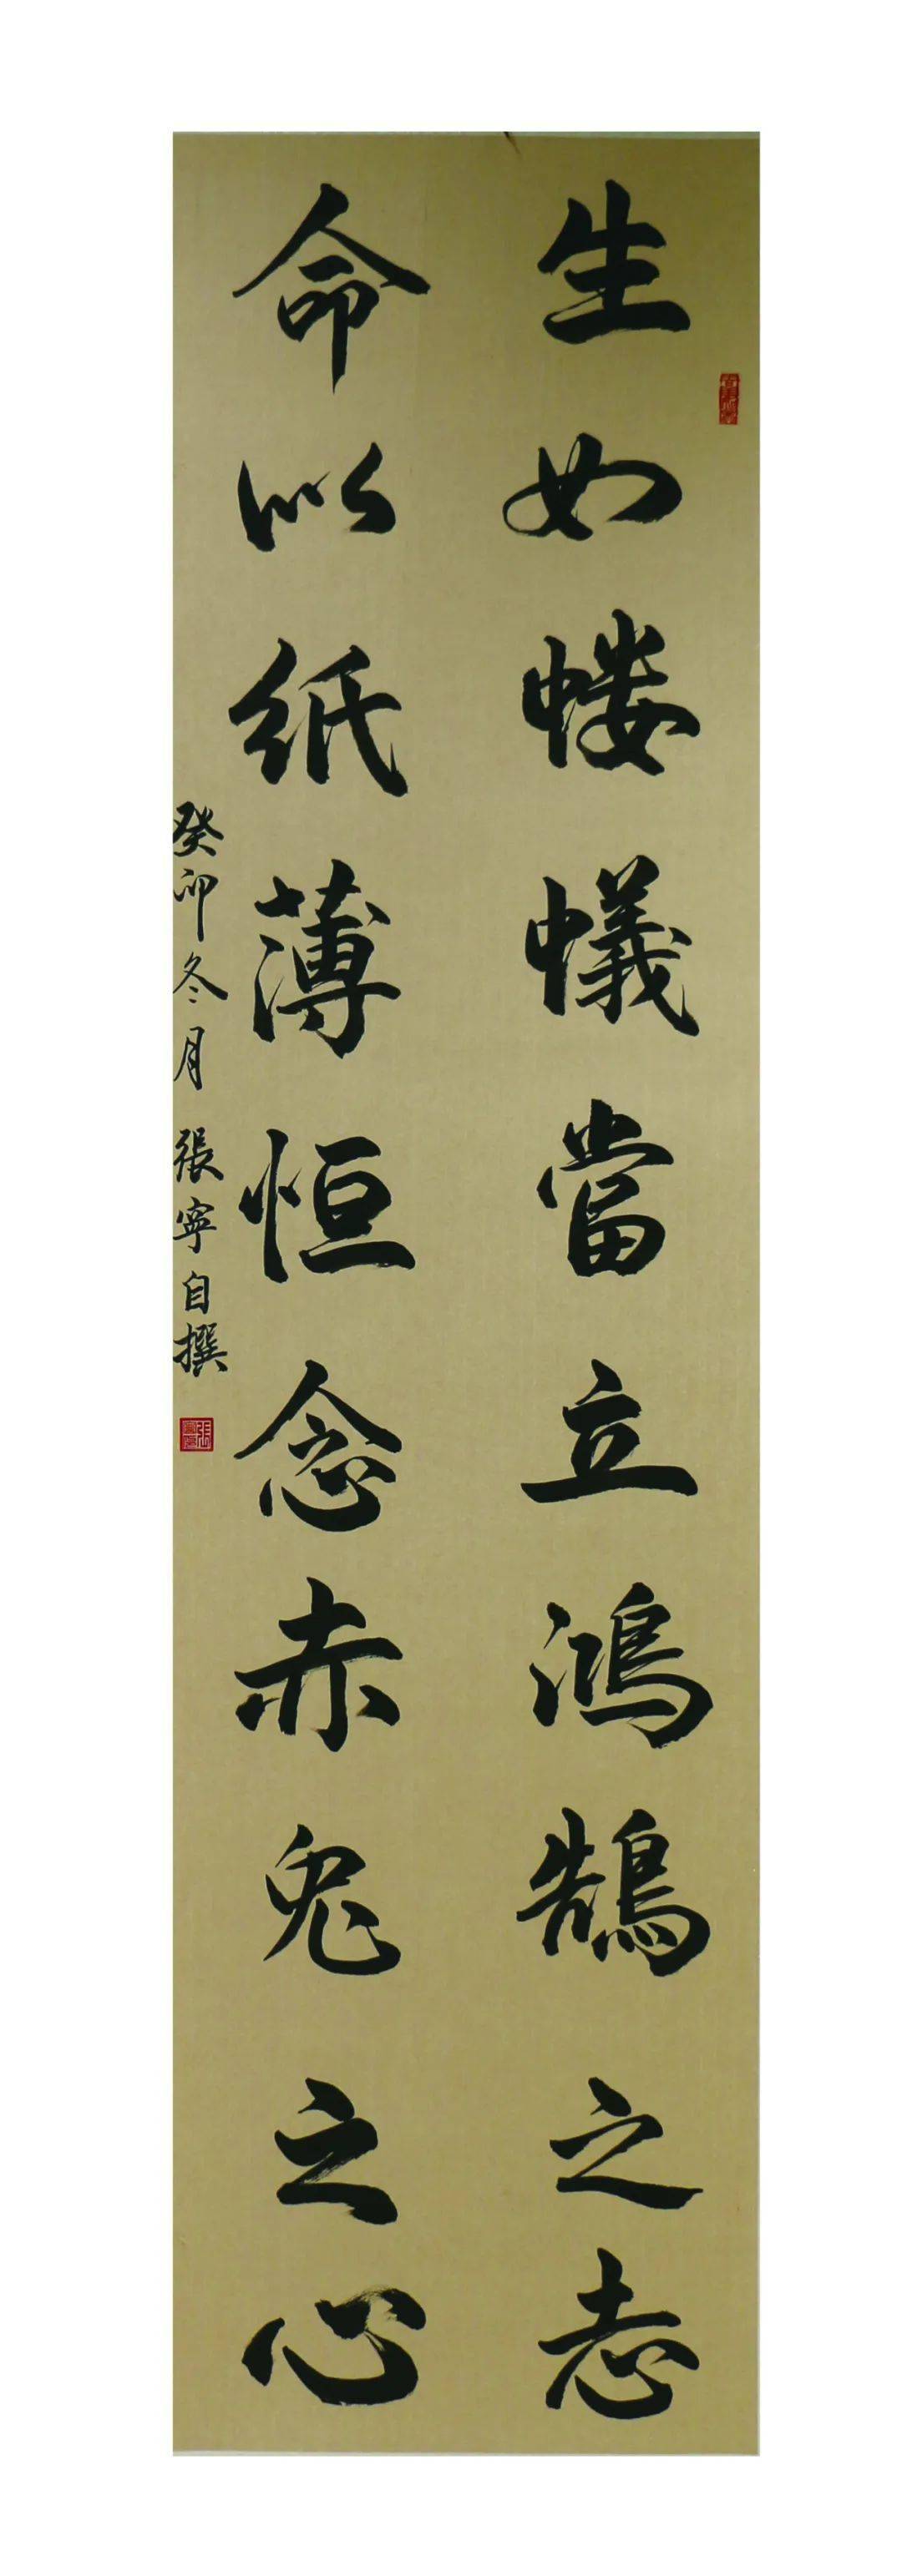 生如蝼蟻當立鴻鵠之志
命以纸薄恒念赤兔之心
癸卯冬月 張寧自撰